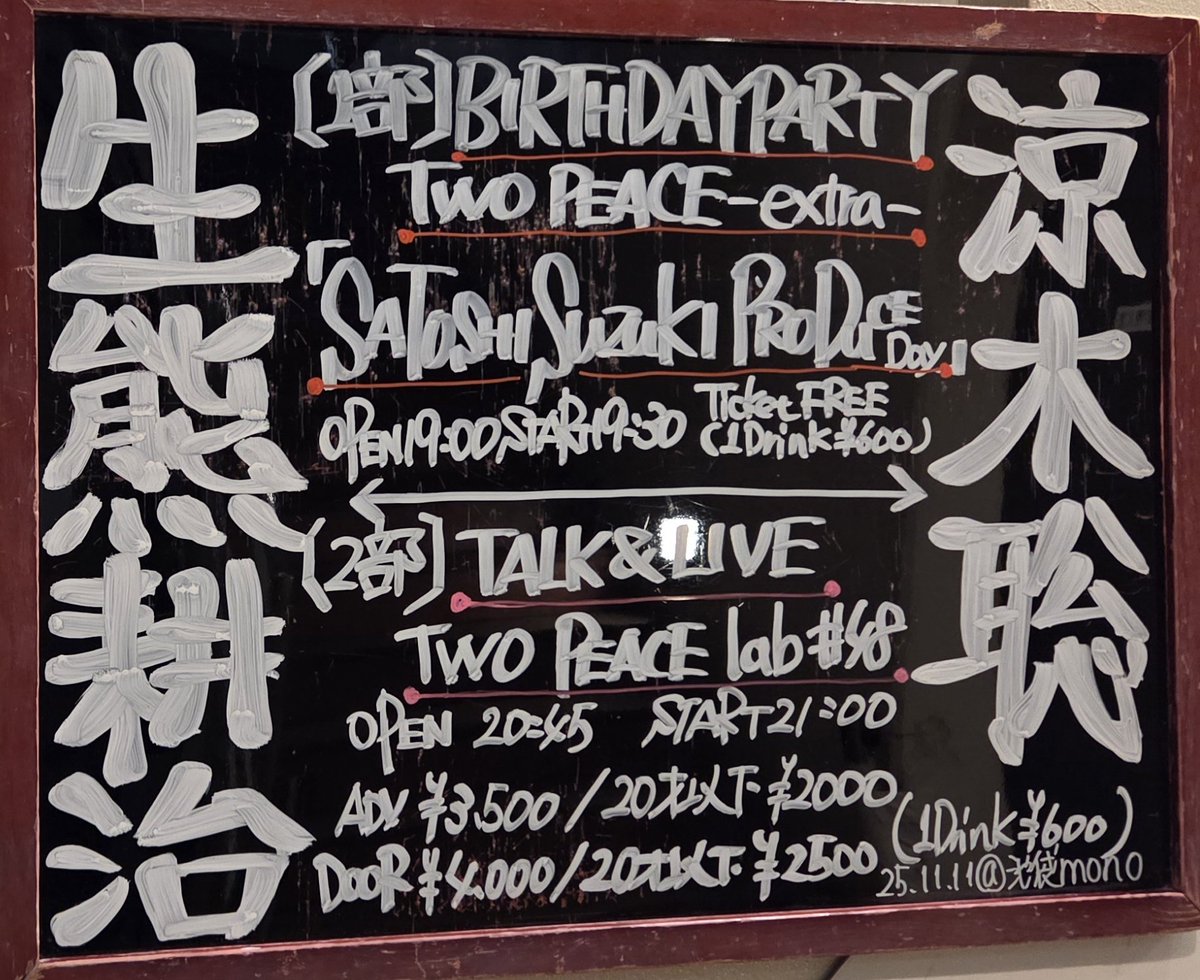 涼木聡
生熊耕治
〔1部〕BIRTHDAY PARTY
TWO PEACE -extra-
「SATOSHI SUZUKI PRODUCE DAY」
OPEN 19:00 START 19:30 Ticket FREE
(1Drink ¥600)
〔2部〕TALK & LIVE
TWO PEACE lab #48
OPEN 20:45 START 21:00
ADV ¥3.500 / 20才以下 ¥2000
DOOR ¥4.000 / 20才以下 ¥2500
(1Drink ¥600)
25.11.11 @ mono